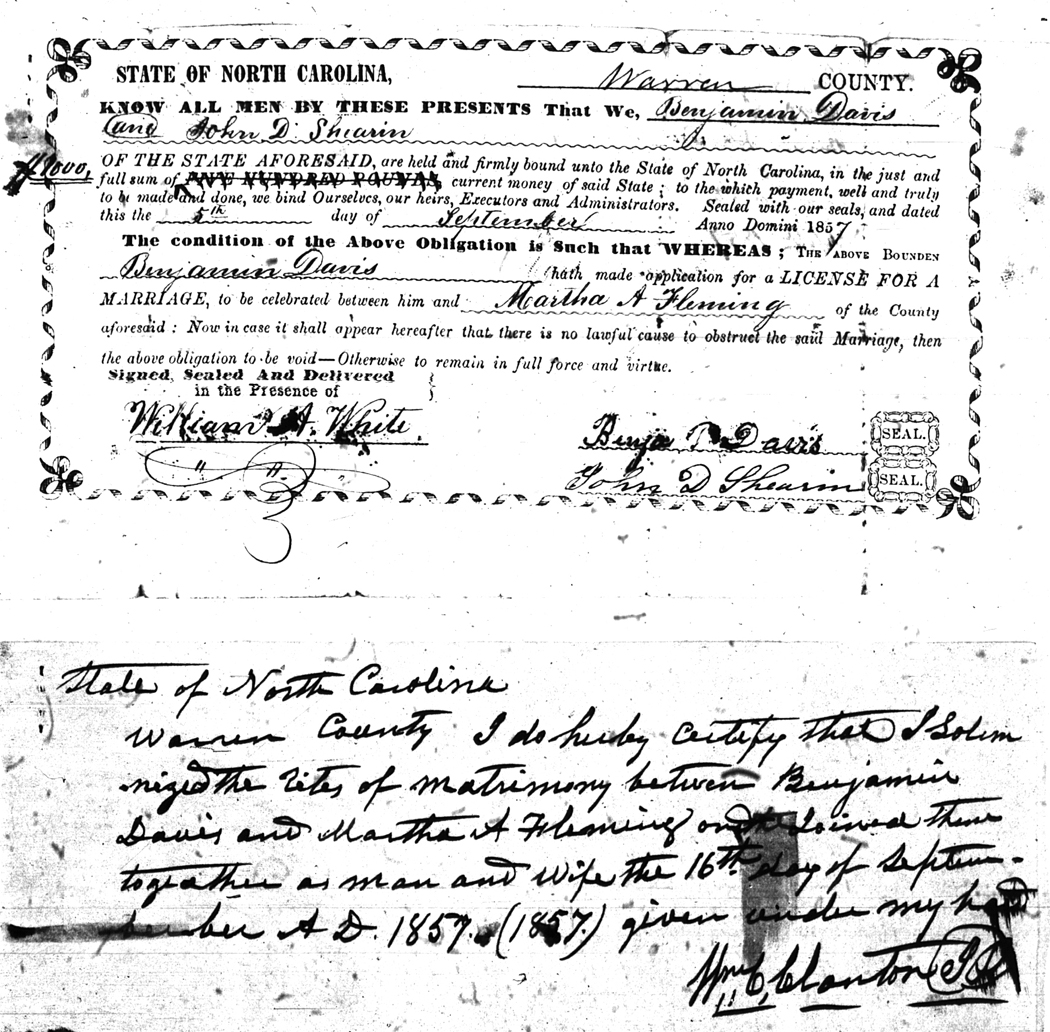 STATE OF NORTH CAROLINA, Warren COUNTY.
KNOW ALL MEN BY THESE PRESENTS That We, Benjamin Davis
and John D. Shearin
$1000,
OF THE STATE AFORESAID, are held and firmly bound unto the State of North Carolina, in the just and
full sum of FIVE HUNDRED POUNDS, current money of said State; to the which payment, well and truly
to be made and done, we bind Ourselves, our heirs, Executors and Administrators. Sealed with our seals, and dated
this the 5th day of September Anno Domini 1857
The condition of the Above Obligation is Such that WHEREAS; THE ABOVE BOUNDEN
Benjamin Davis hath made application for a LICENSE FOR A
MARRIAGE, to be celebrated between him and Martha A Fleming of the County
aforesaid: Now in case it shall appear hereafter that there is no lawful cause to obstruct the said Marriage, then
the above obligation to be void—Otherwise to remain in full force and virtue.
Signed, Sealed And Delivered
in the Presence of
William A. White
Benja T. Davis SEAL.
John D Shearin SEAL.
State of North Carolina
Warren County I do hereby certify that I Solem
nized the Rites of matrimony between Benjamin
Davis and Martha A Fleming and Joined them
together as man and Wife the 16th day of Septem-
ber A D. 1857. (1857.) given under my hand
Wm C. Clanton